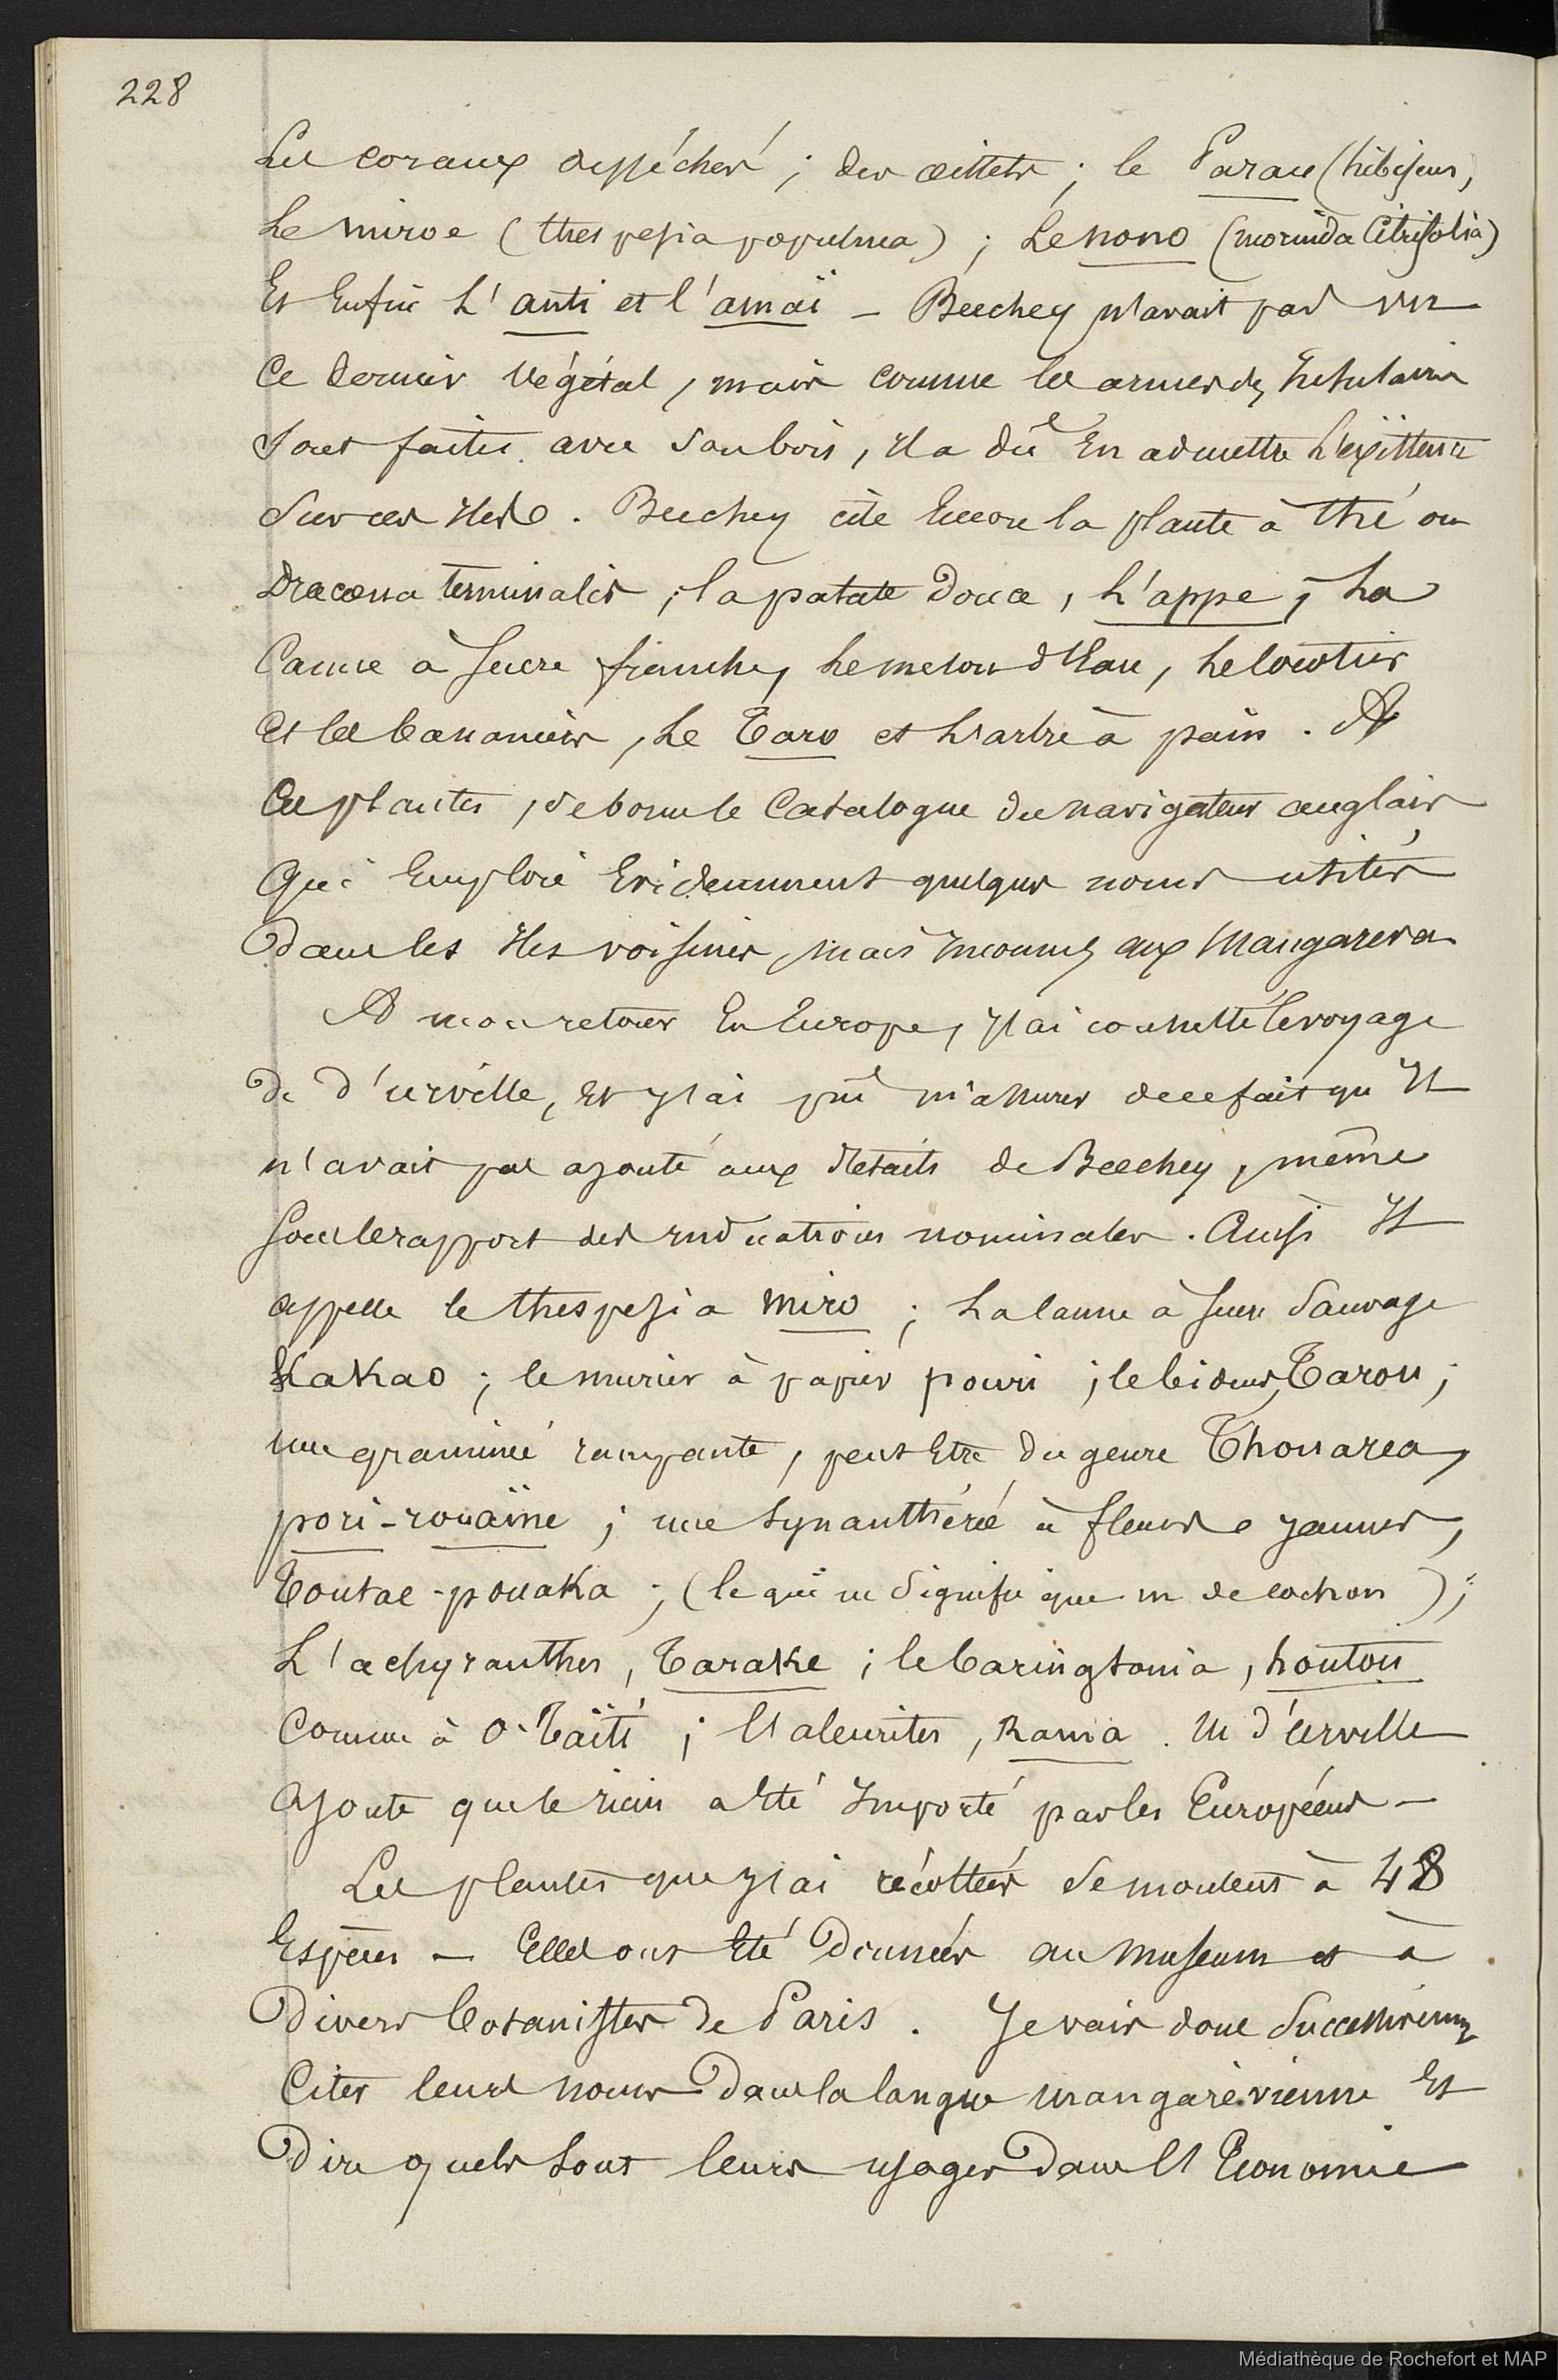 228
Les coraux desséchés ; des œillets ; le Parau (hibiscus,
Le miroe (thespesia populnea) ; Le nono (morinda Citrifolia)
Et Enfin L'anti et l'amaï — Beechey n'avait pas vu
Ce dernier Végétal, mais comme les armes des Insulaires
sont faites avec son bois, Il a dû En admettre L'existence
Sur ces Iles. Beechey cite Encore la plante à thé ou
Dracœna terminalis ; la patate Douce, L'appe, La
Canne à sucre franche, Le melon d'Eau, Le Cocotier
Et les bananiers, Le Taro et L'arbre à pain. A
Ces plantes, se borne le Catalogue du navigateur anglais
Qui Emploie Evidemment quelques noms usités
Dans les Iles voisines, mais Inconnus aux Mangareva
A mon retour En Europe, J'ai consulté le voyage
De d'urville, Et J'ai pû m'assurer de ce fait qu'Il
n'avait pas ajouté aux détails de Beechey, même
Sous le rapport des Indications nominales. Ainsi Il
appelle le thespesia miro ; La Canne à sucre Sauvage
Kakao ; le murier à papier pouri ; le bidens, Tarou ;
une graminée rampante, peut Etre du genre Thouarea,
pori-rouaïne ; une Synanthérée à fleurs Jaunes,
Toutae-pouaka ; (le qui ne signifie que m de cochon) ;
L'achyranthes, Tarake ; le Baringtonia, houtou
Comme à O-Taïti ; l'aleurites, Rama. M d'urville
Ajoute que le ricin a Eté Importé par les Européens —
Les plantes que J'ai récoltées se montent à 48
Espèces — Elles ont Eté Données au museum et à
Divers Botanistes de Paris. Je vais donc Successivement
Citer leurs noms Dans la langue mangarévienne Et
Dire quels sont leurs usages Dans l'Economie
Médiathèque de Rochefort et MAP